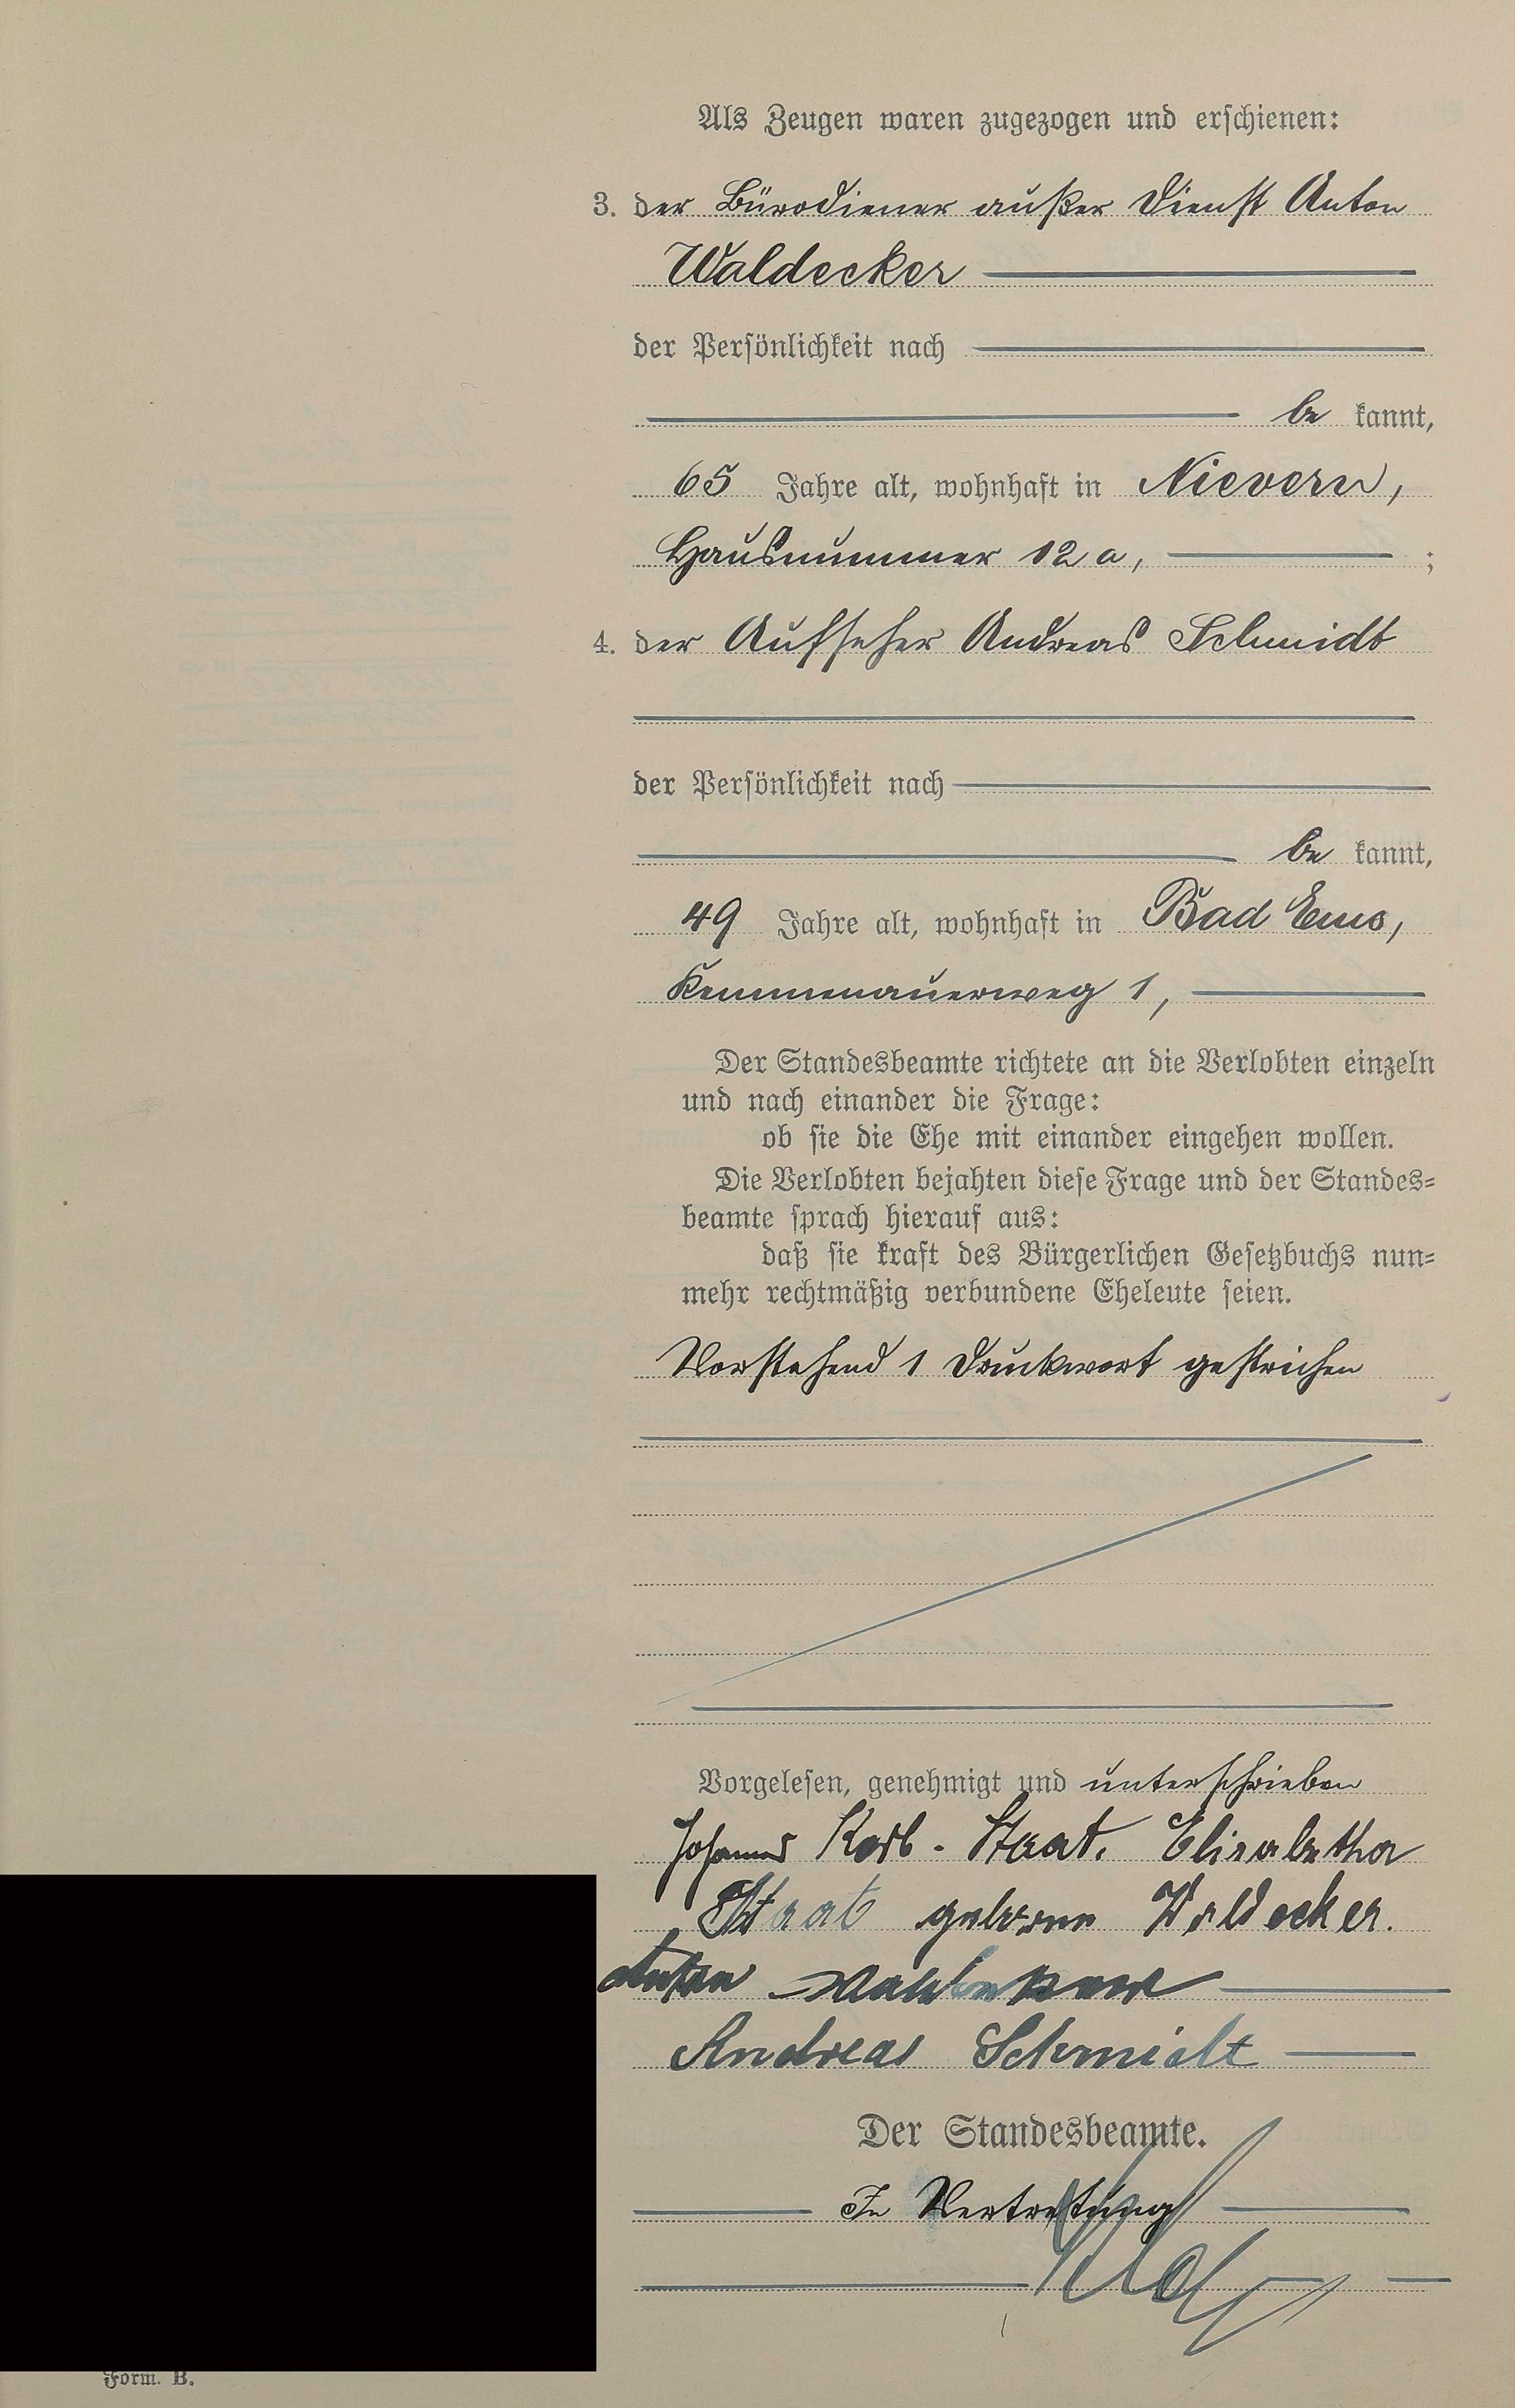 Als Zeugen waren zugezogen und erschienen:
3. der Bürodiener außer Dienst Anton
Waldecker
der Persönlichkeit nach
be kannt,
65 Jahre alt, wohnhaft in Nievern,
Hausnummer 12 a, ;
4. der Aufseher Andreas Schmidt
der Persönlichkeit nach
be kannt,
49 Jahre alt, wohnhaft in Bad Ems,
Kemmenauerweg 1,
Der Standesbeamte richtete an die Verlobten einzeln
und nach einander die Frage:
ob sie die Ehe mit einander eingehen wollen.
Die Verlobten bejahten diese Frage und der Standes-
beamte sprach hierauf aus:
daß sie kraft des Bürgerlichen Gesetzbuchs nun-
mehr rechtmäßig verbundene Eheleute seien.
Vorstehend 1 Druckwort gestrichen
Vorgelesen, genehmigt und unterschrieben
Johann Karl Staat. Elisabetha
Staat geborene Waldecker.
Anton Waldecker
Andreas Schmidt
Der Standesbeamte.
In Vertretung
Form. B.